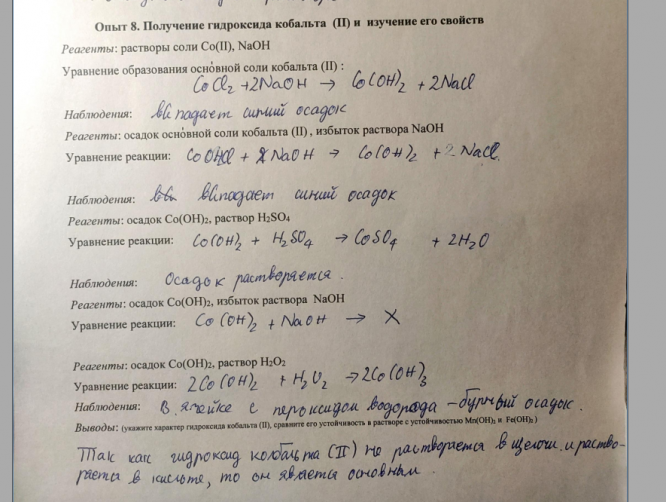 Опыт 8. Получение гидроксида кобальта (II) и изучение его свойств
Реагенты: растворы соли Co(II), NaOH
Уравнение образования оснóвной соли кобальта (II) :
CoCl₂ +2NaOH → Co(OH)₂ + 2NaCl
Наблюдения: выпадает синий осадок
Реагенты: осадок оснóвной соли кобальта (II) , избыток раствора NaOH
Уравнение реакции: CoOHCl + NaOH → Co(OH)₂ + NaCl
Наблюдения: выпадает синий осадок
Реагенты: осадок Co(OH)₂, раствор H₂SO₄
Уравнение реакции: Co(OH)₂ + H₂SO₄ → CoSO₄ + 2H₂O
Наблюдения: Осадок растворяется.
Реагенты: осадок Co(OH)₂, избыток раствора NaOH
Уравнение реакции: Co(OH)₂ + NaOH → X
Реагенты: осадок Co(OH)₂, раствор H₂O₂
Уравнение реакции: 2Co(OH)₂ + H₂O₂ → 2Co(OH)₃
Наблюдения: В ячейке с пероксидом водорода – бурный осадок.
Выводы: (укажите характер гидроксида кобальта (II), сравните его устойчивость в растворе с устойчивостью Mn(OH)₂ и Fe(OH)₂ )
Так как гидроксид кобальта (II) не растворяется в щелочи, и раство-
ряется в кислоте, то он является основным.